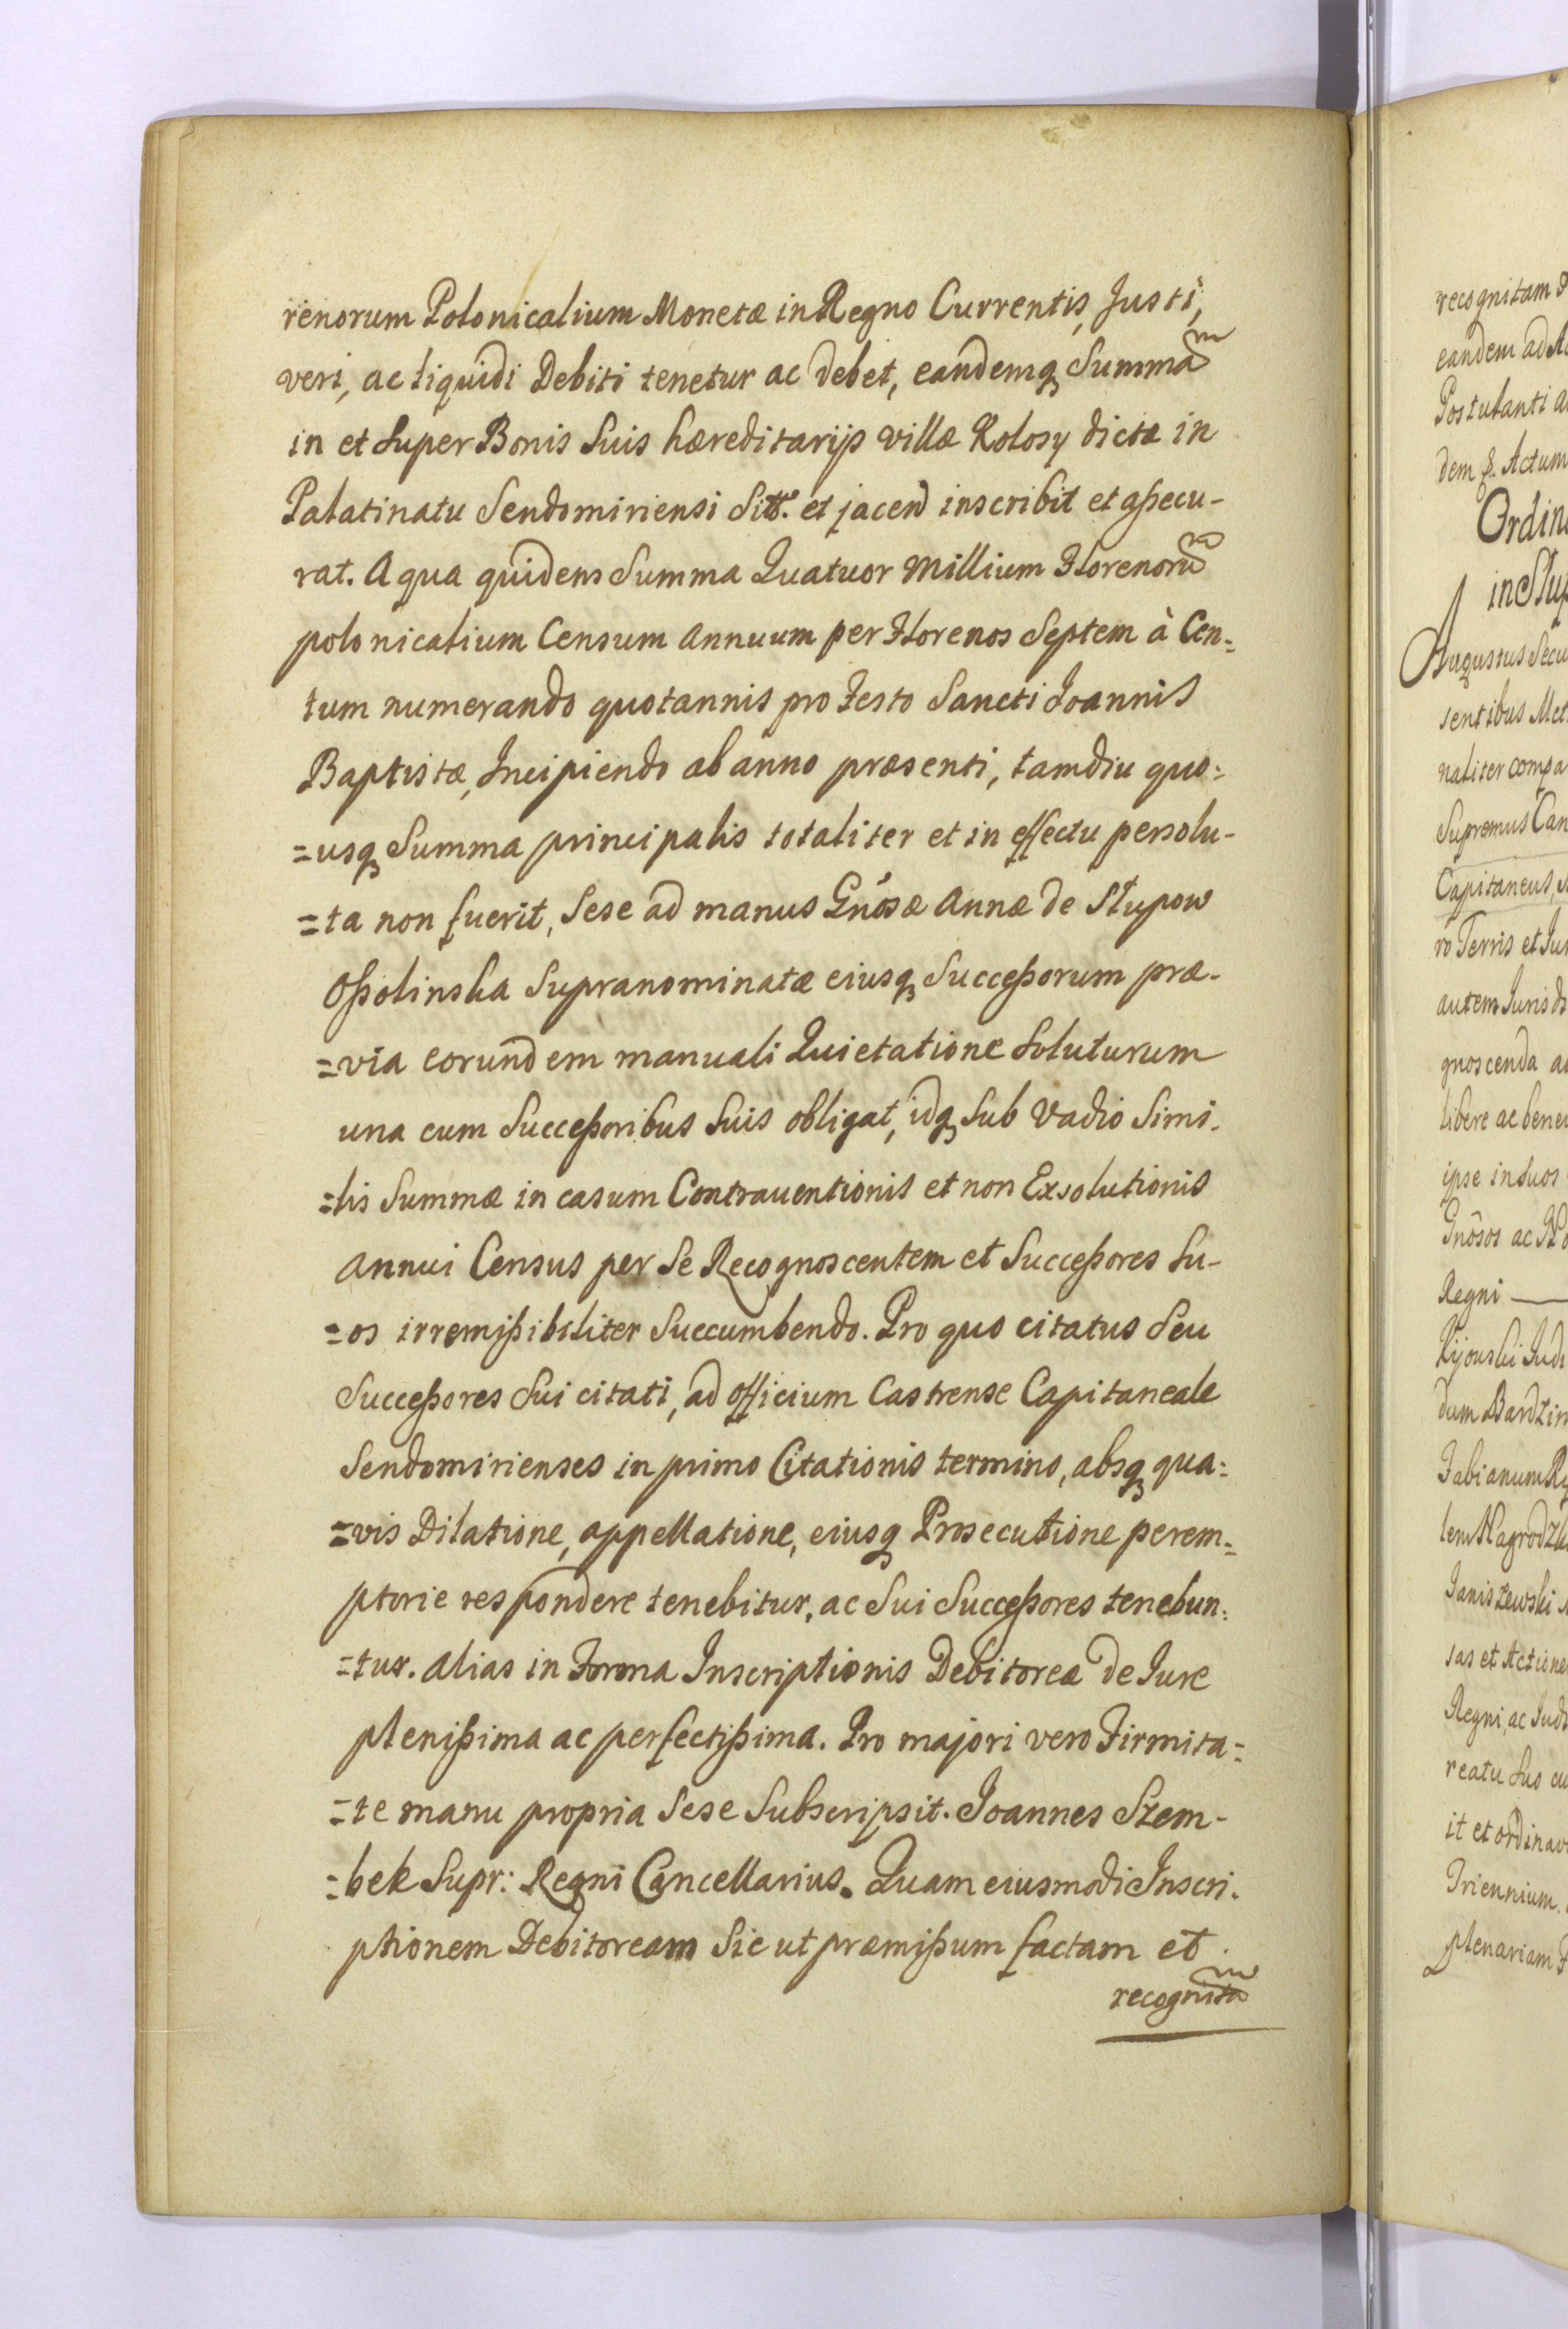 renorum Polonicalium Monetæ in Regno Currentis, Justi,
veri, ac liquidi Debiti tenetur ac debet, eandemq̃ Summã
in et Super Bonis Suis hæreditarijs villæ Kolosy dictæ in
Palatinatu Sendomiriensi Sitt.º et jacen̄ inscribit et aßecu-
rat. A qua quidem Summa Quatuor Millium Florenorũ
polonicalium Censum annuum per Florenos Septem à Cen=
tum numerando quotannis pro Festo Sancti Joannis
Baptistæ, Incipiendo ab anno præsenti, tamdiu quo=
=usq̃ Summa principalis totaliter et in effectu persolu-
=ta non fuerit, Sese ad manus Gnõsæ Annæ de Słupow
Oßolinska Supranominatæ eiusq̃ Succeßorum præ-
=via eorundem manuali Quietatione Soluturum
una cum Succeßoribus Suis obligat, idq̃ Sub Vadio Simi-
=lis Summæ in casum Contrauentionis et non Exsolutionis
annui Census per Se Recognoscentem et Succeßores Su-
=os irremißibiliter Succumbendo. Pro quo citatus Seu
Succeßores Sui citati, ad officium Castrense Capitaneale
Sendomirienses in primo Citationis termino, absq̃ qua=
=vis Dilatione, appellatione, eiusq̃ Prosecutione perem=
ptorie respondere tenebitur, ac Sui Succeßores tenebun=
=tur. Alias in Forma Inscriptionis Debitoreæ de Jure
plenißima ac perfectißima. Pro majori vero Firmita=
=te manu propria Sese Subscripsit. Joannes Szem-
=bek Supr: Regni Cancellarius. Quam eiusmodi Inscri-
ptionem Debitoream Sic ut præmißum factam et
recognitã
recognitam
eandem ad
Postulanti
dem
Actum
Augustus Secu
sentibus Met
naliter compa
Supremus Can
Capitaneus,
ro Terris et Ju
autem Juris d
gnoscenda
libere ac bene
ipse in Suos
Gnõsos ac
Regni —
Kijouski Jud
dum Bardzin
Fabianum
lem Nagrodzk
Janiszewski
sas et Actione
Regni, ac Jud
reatu Suo
it et ordinav
Triennium.
plenariam